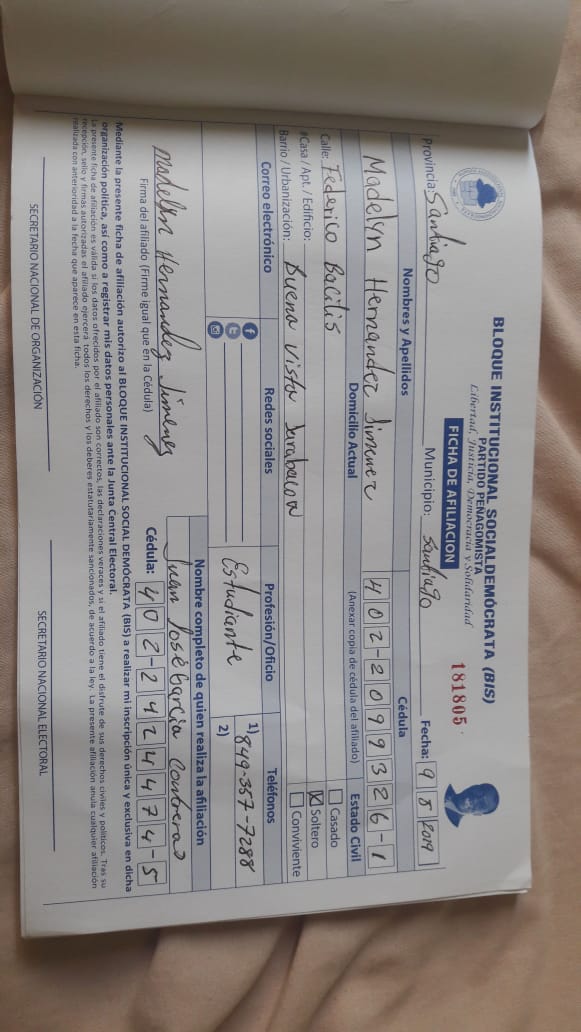 BLOQUE INSTITUCIONAL SOCIALDEMÓCRATA (BIS)
PARTIDO PEÑAGOMISTA
Libertad, Justicia, Democracia y Solidaridad
FICHA DE AFILIACION
181805
Provincia: Santiago Municipio: Santiago Fecha: 9 8 2019
Nombres y Apellidos Cédula
Madelyn Hernandez Jimenez 402-2099326-1
Domicilio Actual (Anexar copia de cédula del afiliado) Estado Civil
Calle: Federico Bacilis Casado
#Casa / Apt. / Edificio: Soltero
Barrio / Urbanización: Buena Vista Jarabacoa Conviviente
Correo electrónico Redes sociales Profesión/Oficio Teléfonos
Estudiante 1) 849-357-7288
2)
Nombre completo de quien realiza la afiliación
Madelyn Hernandez Jimenez Juan José Garcia Contreras
Firma del afiliado (Firme igual que en la Cédula) Cédula: 402-2424474-5
Mediante la presente ficha de afiliación autorizo al BLOQUE INSTITUCIONAL SOCIAL DEMÓCRATA (BIS) a realizar mi inscripción única y exclusiva en dicha
organización política, así como a registrar mis datos personales ante la Junta Central Electoral.
La presente ficha de afiliación es válida si los datos ofrecidos por el afiliado son correctos, las declaraciones veraces y si el afiliado tiene el disfrute de sus derechos civiles y políticos. Tras su
recepción, sello y firmas autorizadas el afiliado ejercerá todos los derechos y los deberes estatutariamente sancionados, de acuerdo a la ley. La presente afiliación anula cualquier afiliación
realizada con anterioridad a la fecha que aparece en esta ficha.
SECRETARIO NACIONAL DE ORGANIZACIÓN SECRETARIO NACIONAL ELECTORAL